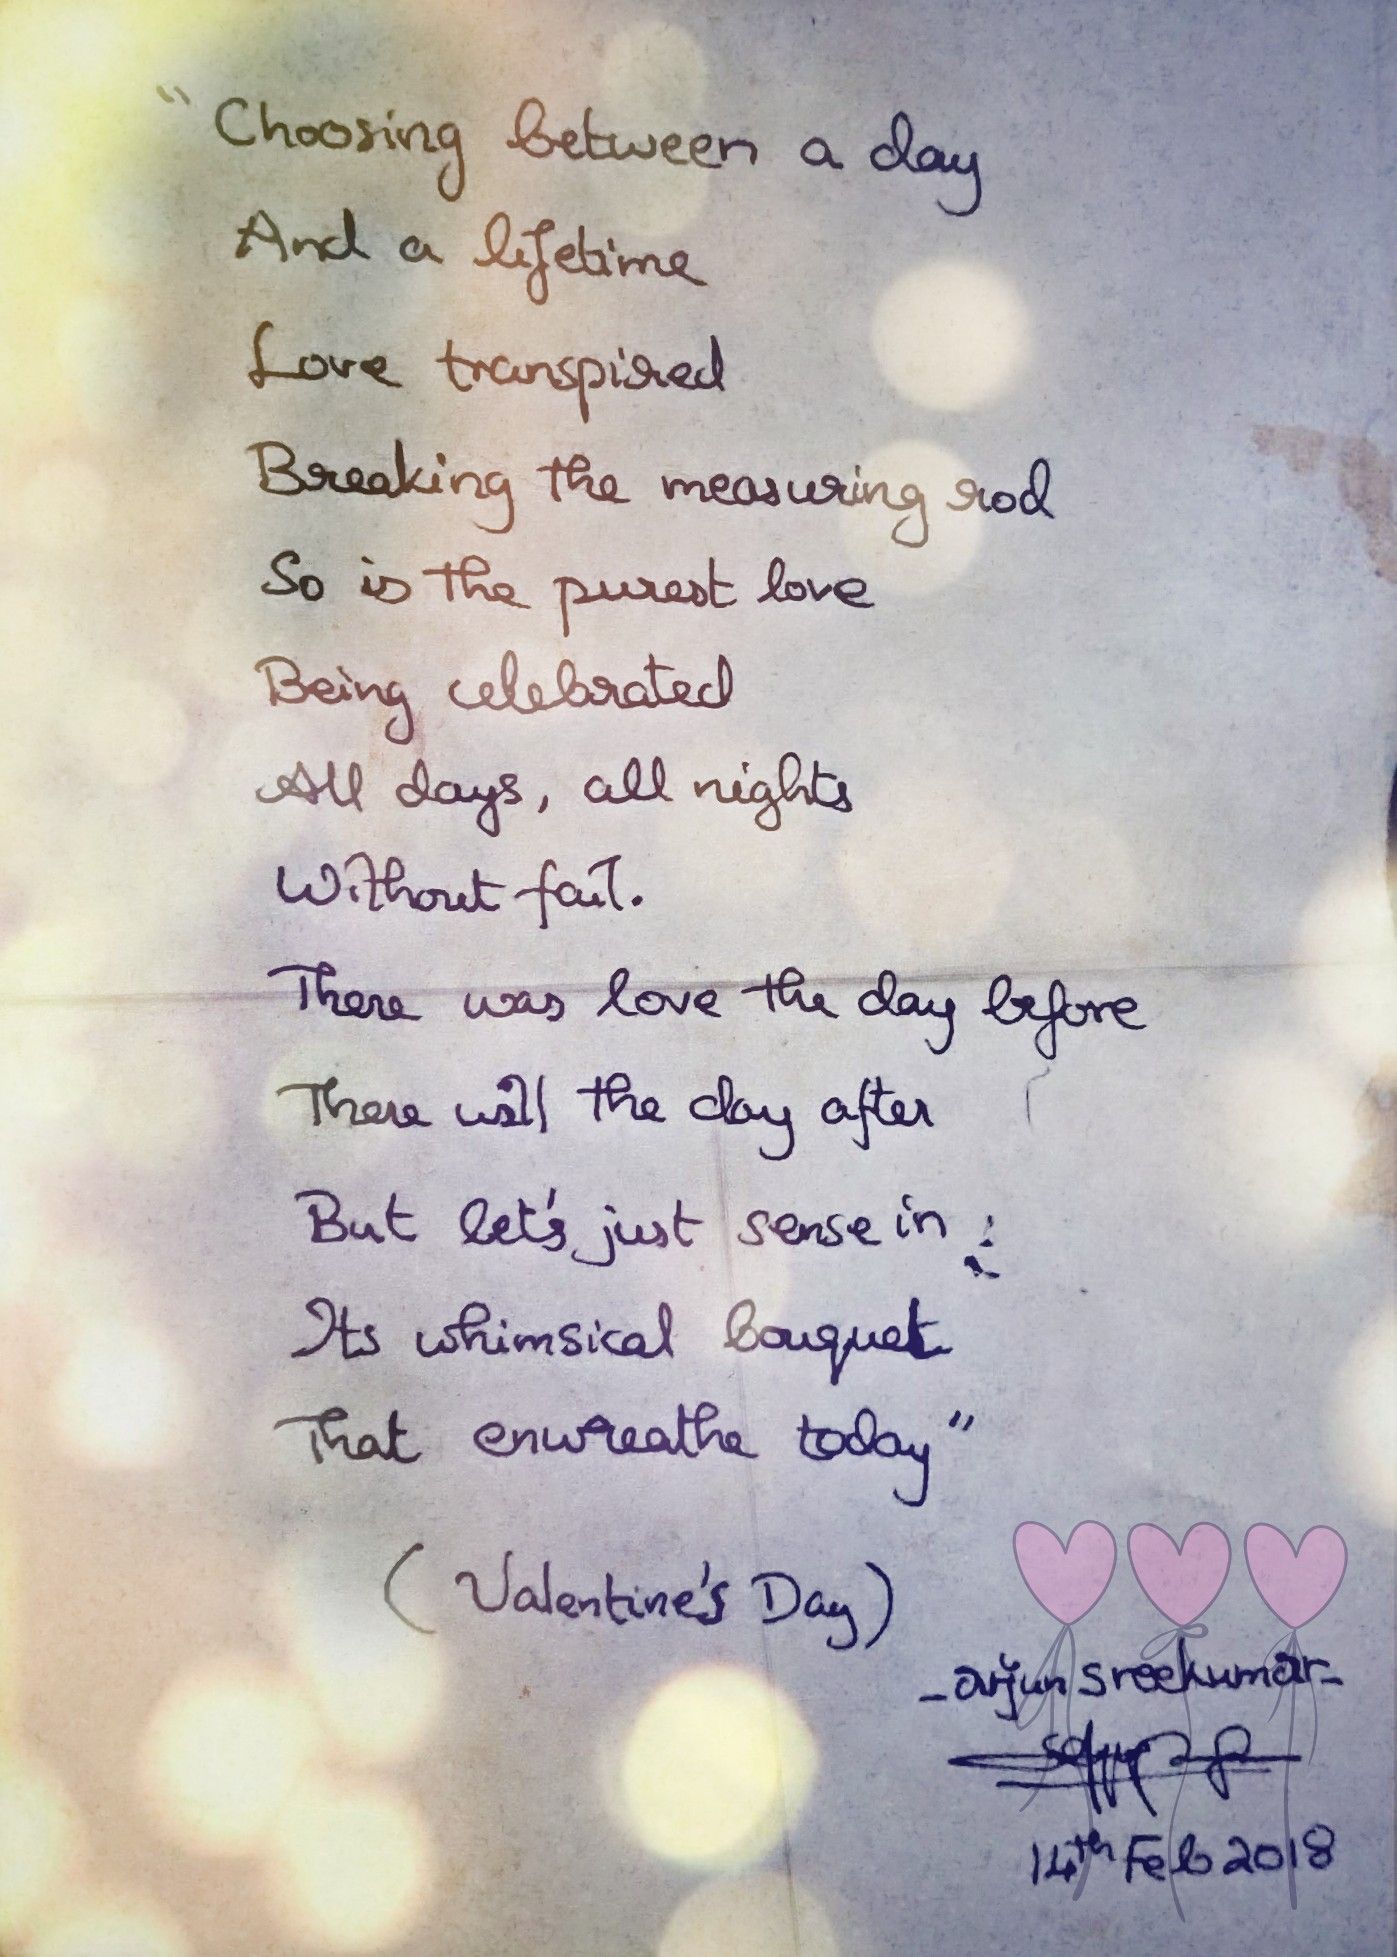 "Choosing between a day
And a lifetime
Love transpired
Breaking the measuring rod
So is the purest love
Being celebrated
All days, all nights
Without fail.
There was love the day before
There will the day after
But let's just sense in
Its whimsical bouquet
That enwreathe today"
(Valentine's Day)
-arjun sreekumar-
14th Feb 2018